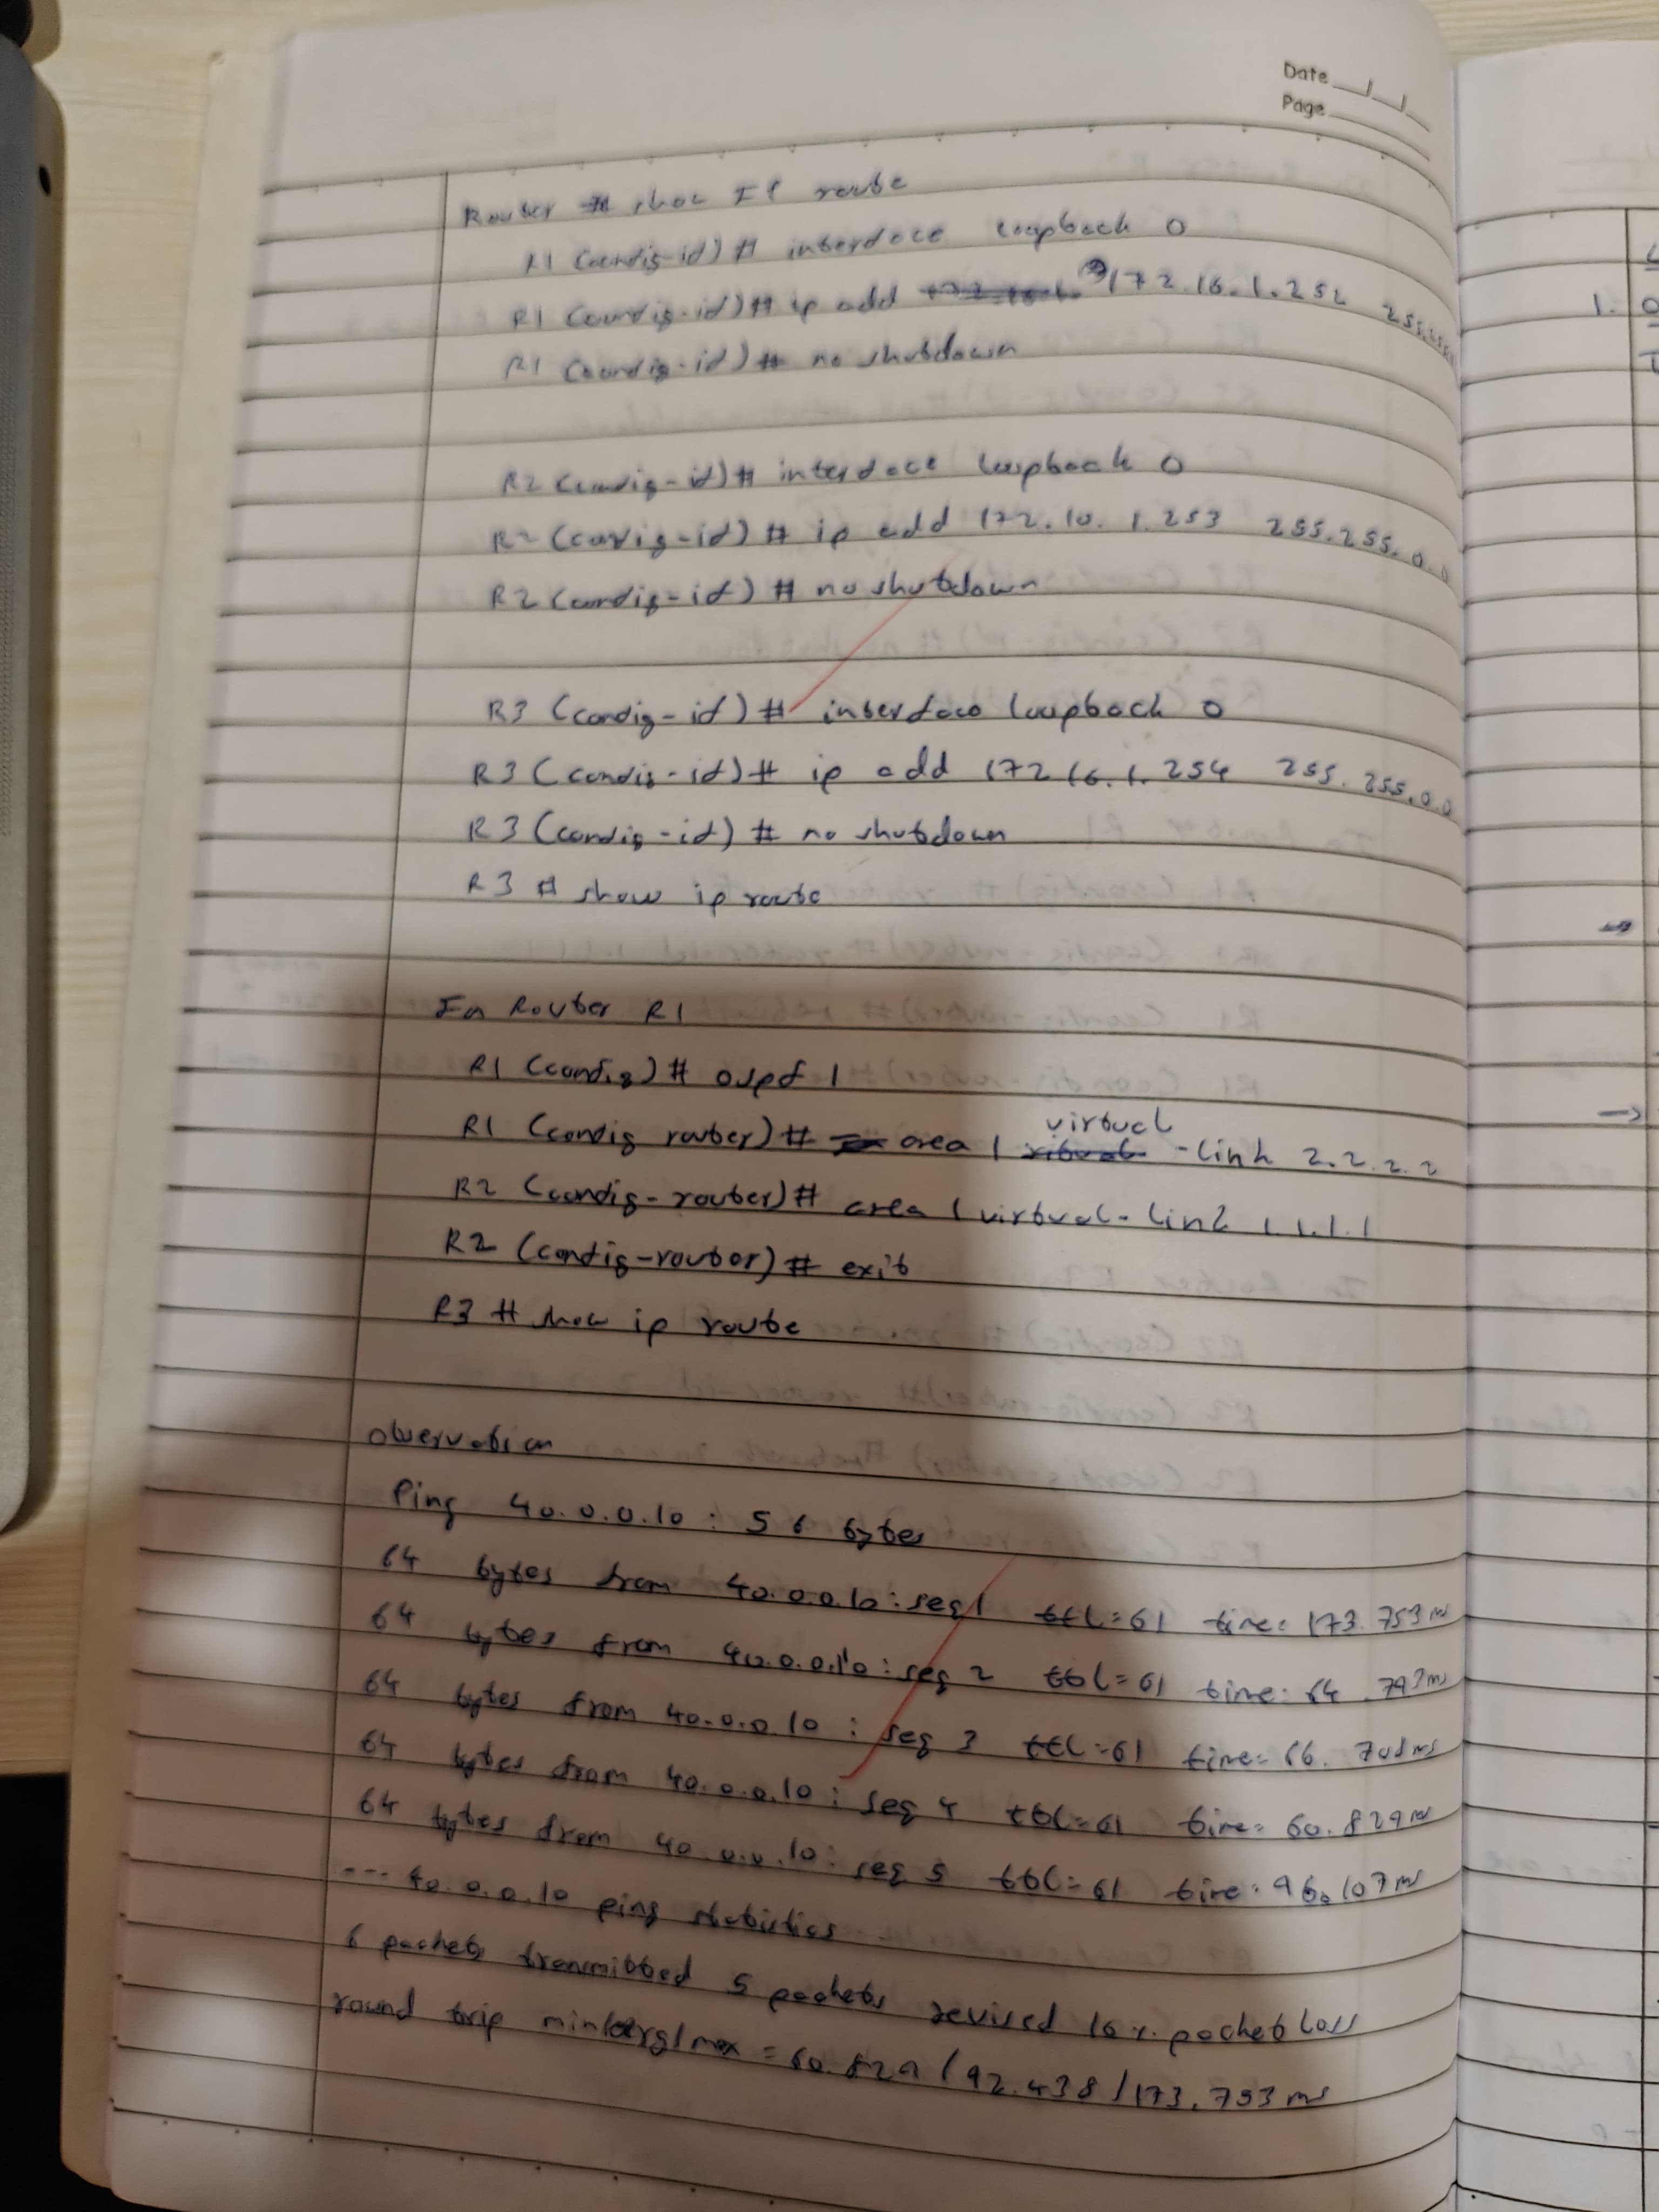 Date
Page
Router # show IP route
R1 (config-if) # interface loopback 0
R1 (config-if) # ip add 172.16.1.252 255.255
R1 (config-if) # no shutdown
R2 (config-if) # interface loopback 0
R2 (config-if) # ip add 172.10.1.253 255.255.0.0
R2 (config-if) # no shutdown
R3 (config-if) # interface loopback 0
R3 (config-if) # ip add 172.16.1.254 255.255.0.0
R3 (config-if) # no shutdown
R3 # show ip route
In Router R1
R1 (config) # ospf 1
R1 (config router) # area 1 virtual -link 2.2.2.2
R2 (config-router) # area 1 virtual-link 1.1.1.1
R2 (config-router) # exit
R3 # show ip route
Observation
Ping 40.0.0.10 : 56 bytes
64 bytes from 40.0.0.10 : seq 1 ttl=61 time= 173.753 ms
64 bytes from 40.0.0.10 : seq 2 ttl=61 time: 64.793 ms
64 bytes from 40.0.0.10 : seq 3 ttl=61 time= 66.708 ms
64 bytes from 40.0.0.10 : seq 4 ttl=61 time= 60.829 ms
64 bytes from 40.0.0.10 : seq 5 ttl=61 time: 96.107 ms
--- 40.0.0.10 ping statistics
6 packets transmitted 5 packets revised 16 % packet loss
round trip min/avg/max = 60.829 / 92.438 / 173.753 ms